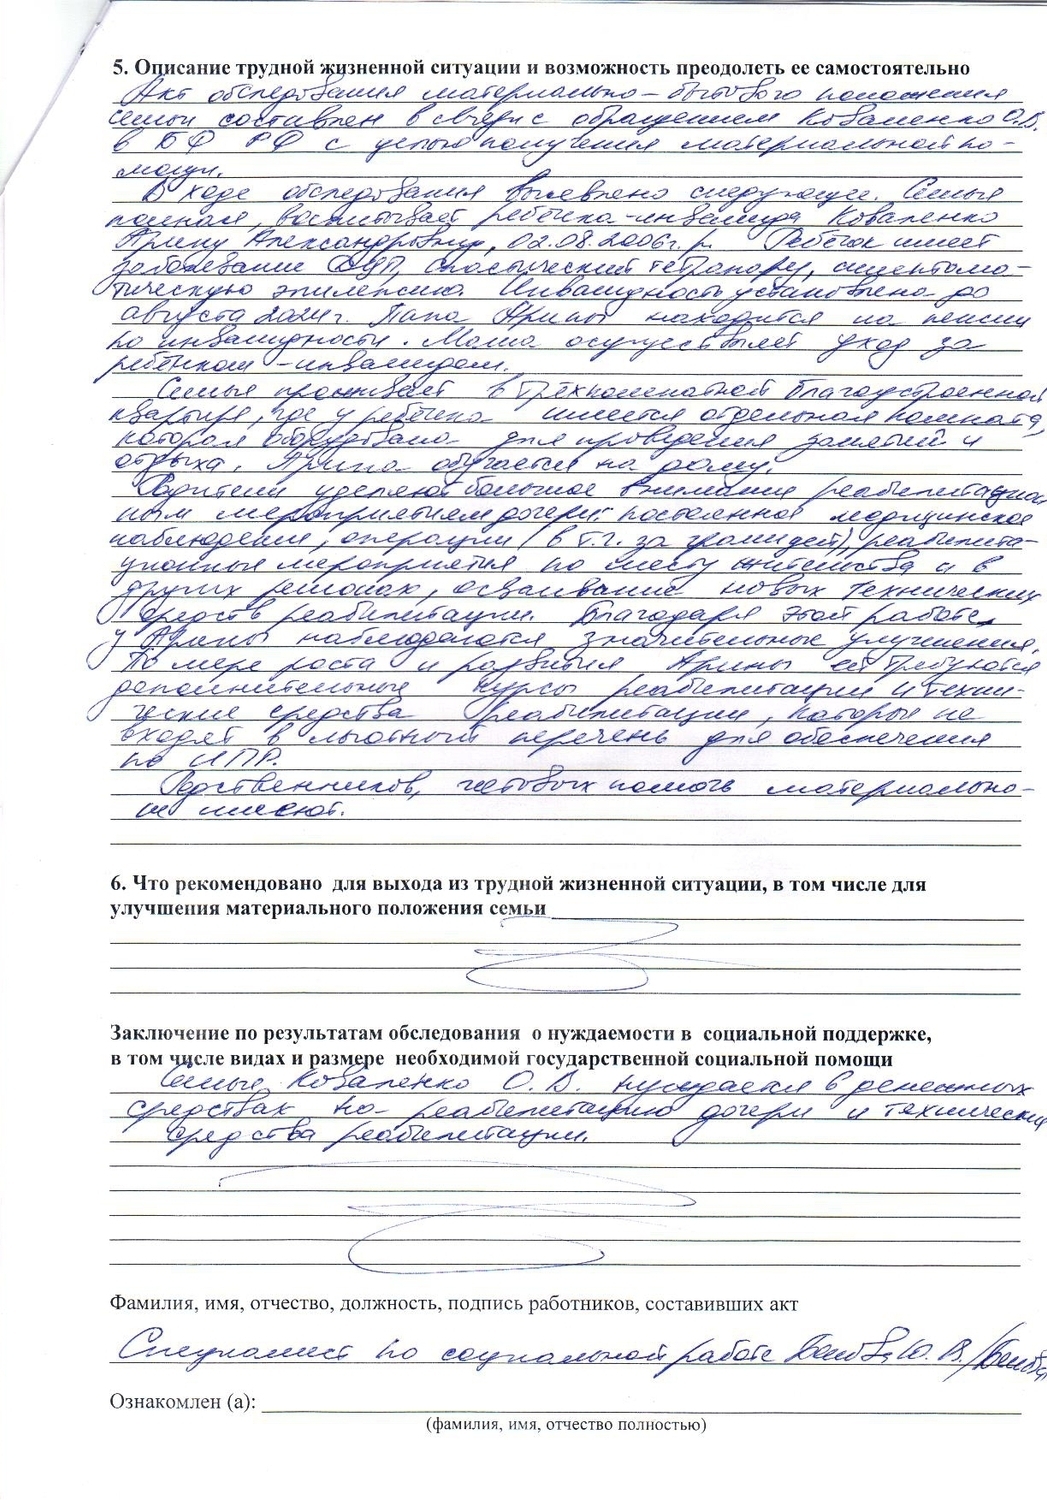 5. Описание трудной жизненной ситуации и возможность преодолеть ее самостоятельно
Акт обследования материально-бытового положения
семьи составлен в связи с обращением Коваленко О.В.
в БФ РФ с целью получения материальной по-
мощи.
В ходе обследования выявлено следующее. Семья
полная, воспитывает ребенка-инвалида Коваленко
Арину Александровну, 02.08.2006г.р. Ребенок имеет
заболевание ДЦП, спастический тетрапарез, симптома-
тическую эпилепсию. Инвалидность установлена до
августа 2024г. Папа Арины находится на пенсии
по инвалидности. Мама осуществляет уход за
ребенком-инвалидом.
Семья проживает в трехкомнатной благоустроенной
квартире, где у ребенка имеется отдельная комната,
которая оборудована для проведения занятий и
отдыха. Арина обучается на дому.
Родители уделяют большое внимание реабилитацион
ным мероприятиям дочери: постоянное медицинское
наблюдение, операции (в т.ч. за границей), реабилита-
ционные мероприятия по месту жительства и в
других регионах, осваивание новых технических
средств реабилитации. Благодаря этой работе
у Арины наблюдаются значительные улучшения.
По мере роста и развития Арины ей требуются
дополнительные курсы реабилитации и техни-
ческие средства реабилитации, которые не
входят в льготный перечень для обеспечения
по ИПР.
Родственников, готовых помочь материально-
не имеют.
6. Что рекомендовано для выхода из трудной жизненной ситуации, в том числе для
улучшения материального положения семьи
Заключение по результатам обследования о нуждаемости в социальной поддержке,
в том числе видах и размере необходимой государственной социальной помощи
Семья Коваленко О. В. нуждается в денежных
средствах на реабилитацию дочери и технически
средства реабилитации.
Фамилия, имя, отчество, должность, подпись работников, составивших акт
Специалист по социальной работе Ю. В.
Ознакомлен (а):
(фамилия, имя, отчество полностью)